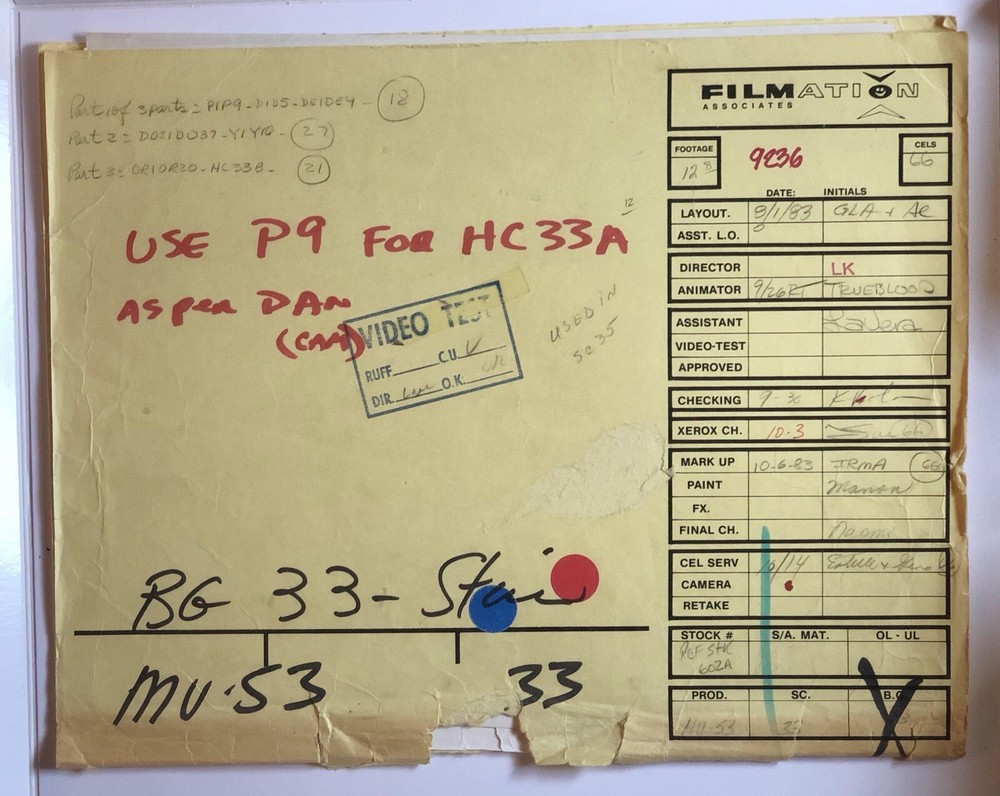 Part 1 of 3 parts = P1P9-D1D5-DE1DE9- 18
Part 2 = DO21DO37-Y1Y10- 27
Part 3 = OR1OR20-HC33B- 21
12
USE P9 FOR HC33A
AS PER DAN
(CAM)
VIDEO TEST
RUFF C.U. V
DIR. O.K.
USED IN
SC 35
BG 33-
MU-53 33
FILMATION
ASSOCIATES
FOOTAGE
12 8
9236
CELS
66
DATE: INITIALS
LAYOUT. 8/1/83 GLA + AC
ASST. L.O.
DIRECTOR LK
ANIMATOR 9/26 TRUEBLOOD
ASSISTANT LaVera
VIDEO-TEST
APPROVED
CHECKING 9-30
XEROX CH. 10-3
MARK UP 10-6-83 IRMA 66
PAINT Manon
FX.
FINAL CH. Naomi
CEL SERV 10/14
CAMERA
RETAKE
STOCK # S/A. MAT. OL - UL
REF STK
602A
PROD. SC. B.G.
MU-53 33